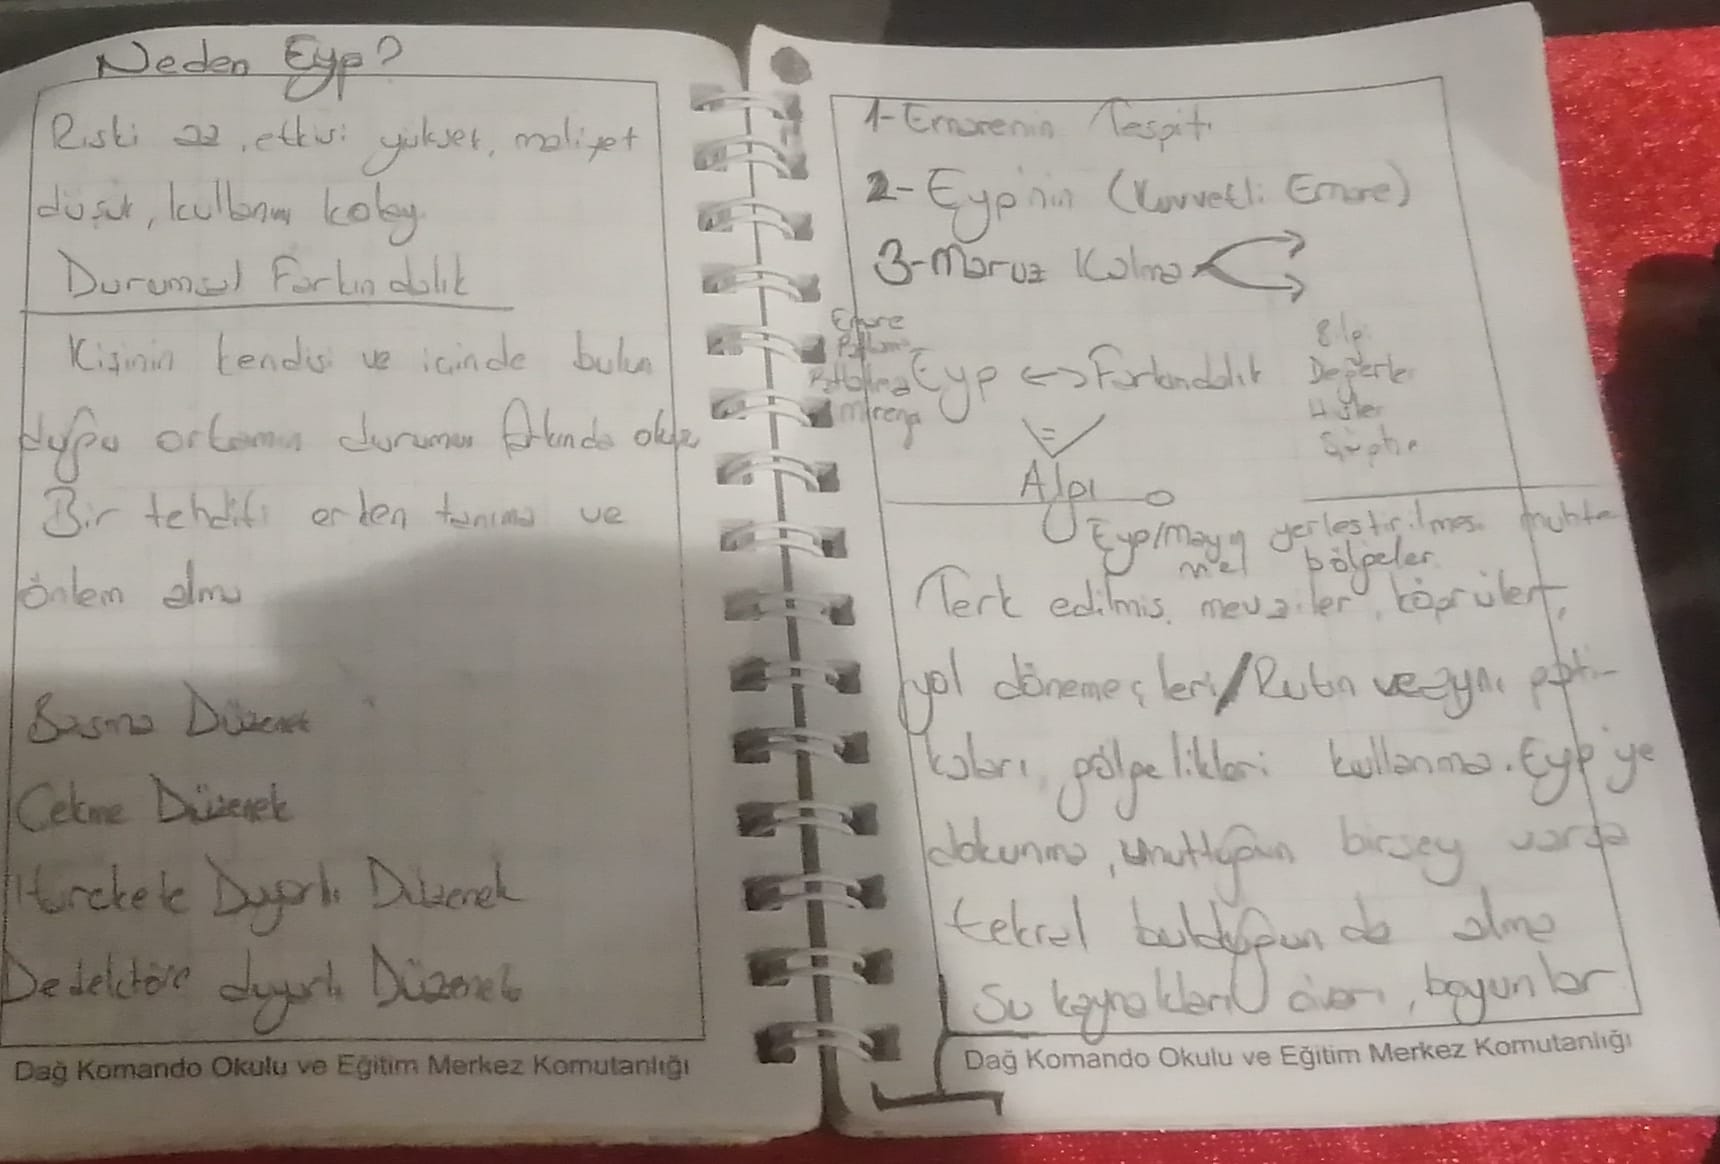 Neden Eyp?
Riski az, etkisi yüksek, maliyet
düşük, kullanımı kolay
Durumsal Farkındalık
Kişinin kendisi ve içinde bulun
duğu ortamın durumu farkında olma
Bir tehditi erken tanıma ve
önlem alma
Basma Düzenek
Cekme Düzenek
Harekete Duyarlı Düzenek
Dedektöre duyarlı Düzenek
Dağ Komando Okulu ve Eğitim Merkez Komutanlığı
1-Emarenin Tespiti
2-Eyp'nin (Kuvvetli Emare)
3-Maruz Kalma
Emare
Patlama
Eyp <-> Farkındalık
Bilgi
Değerler
Hisler
Şüphe
Algı
Eyp/Mayın yerleştirilmesi muhte
mel bölgeler
Terk edilmiş mevziler, köprüler,
yol dönemeçleri/Rutin ve aynı pati-
kaları, gölgelikleri kullanma. Eyp'ye
dokunma, unuttuğun birşey varsa
tekrar bulduğunda alma
Su kaynakları civarı, boyunlar
Dağ Komando Okulu ve Eğitim Merkez Komutanlığı